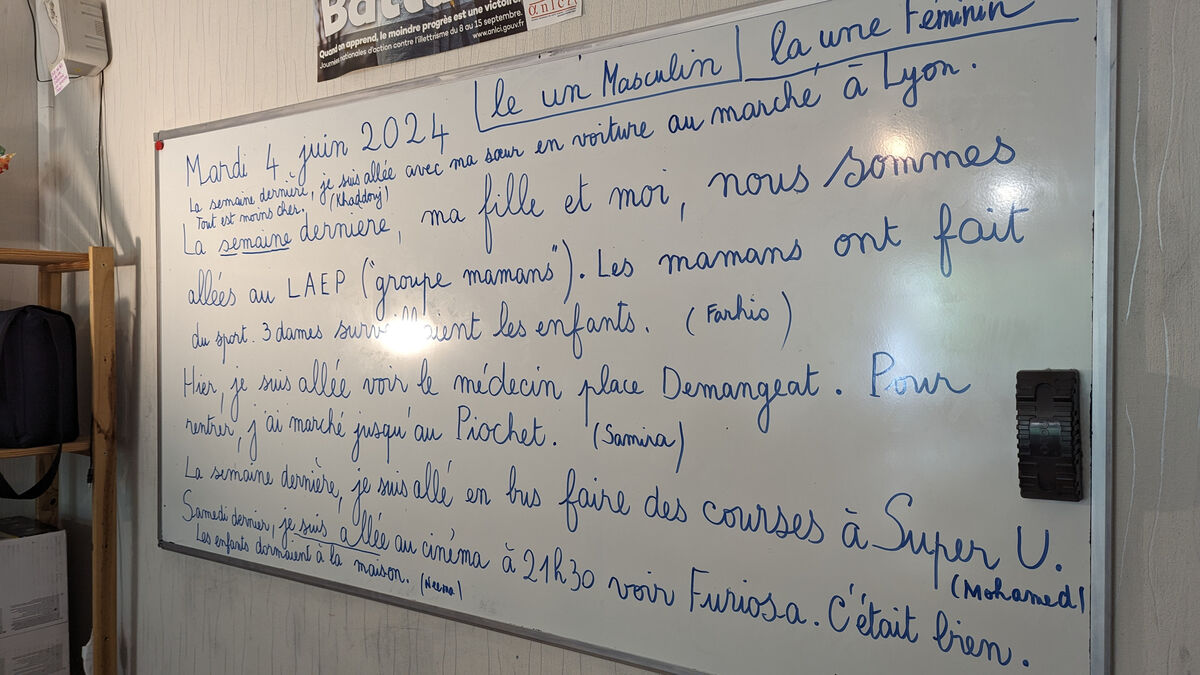 Quand on apprend, le moindre progrès est une victoire
Journées nationales d'action contre l'illettrisme du 8 au 15 septembre. www.anlci.gouv.fr
anlci
le un Masculin | la, une Féminin
Mardi 4 juin 2024
La semaine dernière, je suis allée avec ma sœur en voiture au marché à Lyon.
Tout est moins cher. (Khaddouj)
La semaine dernière, ma fille et moi, nous sommes
allées au LAEP ("groupe mamans"). Les mamans ont fait
du sport. 3 dames surveillaient les enfants. (Farhio)
Hier, je suis allée voir le médecin place Demangeat. Pour
rentrer, j'ai marché jusqu'au Piochet. (Samira)
La semaine dernière, je suis allé en bus faire des courses à Super U.
(Mohamed)
Samedi dernier, je suis allée au cinéma à 21h30 voir Furiosa. C'était bien.
Les enfants dormaient à la maison. (Neema)